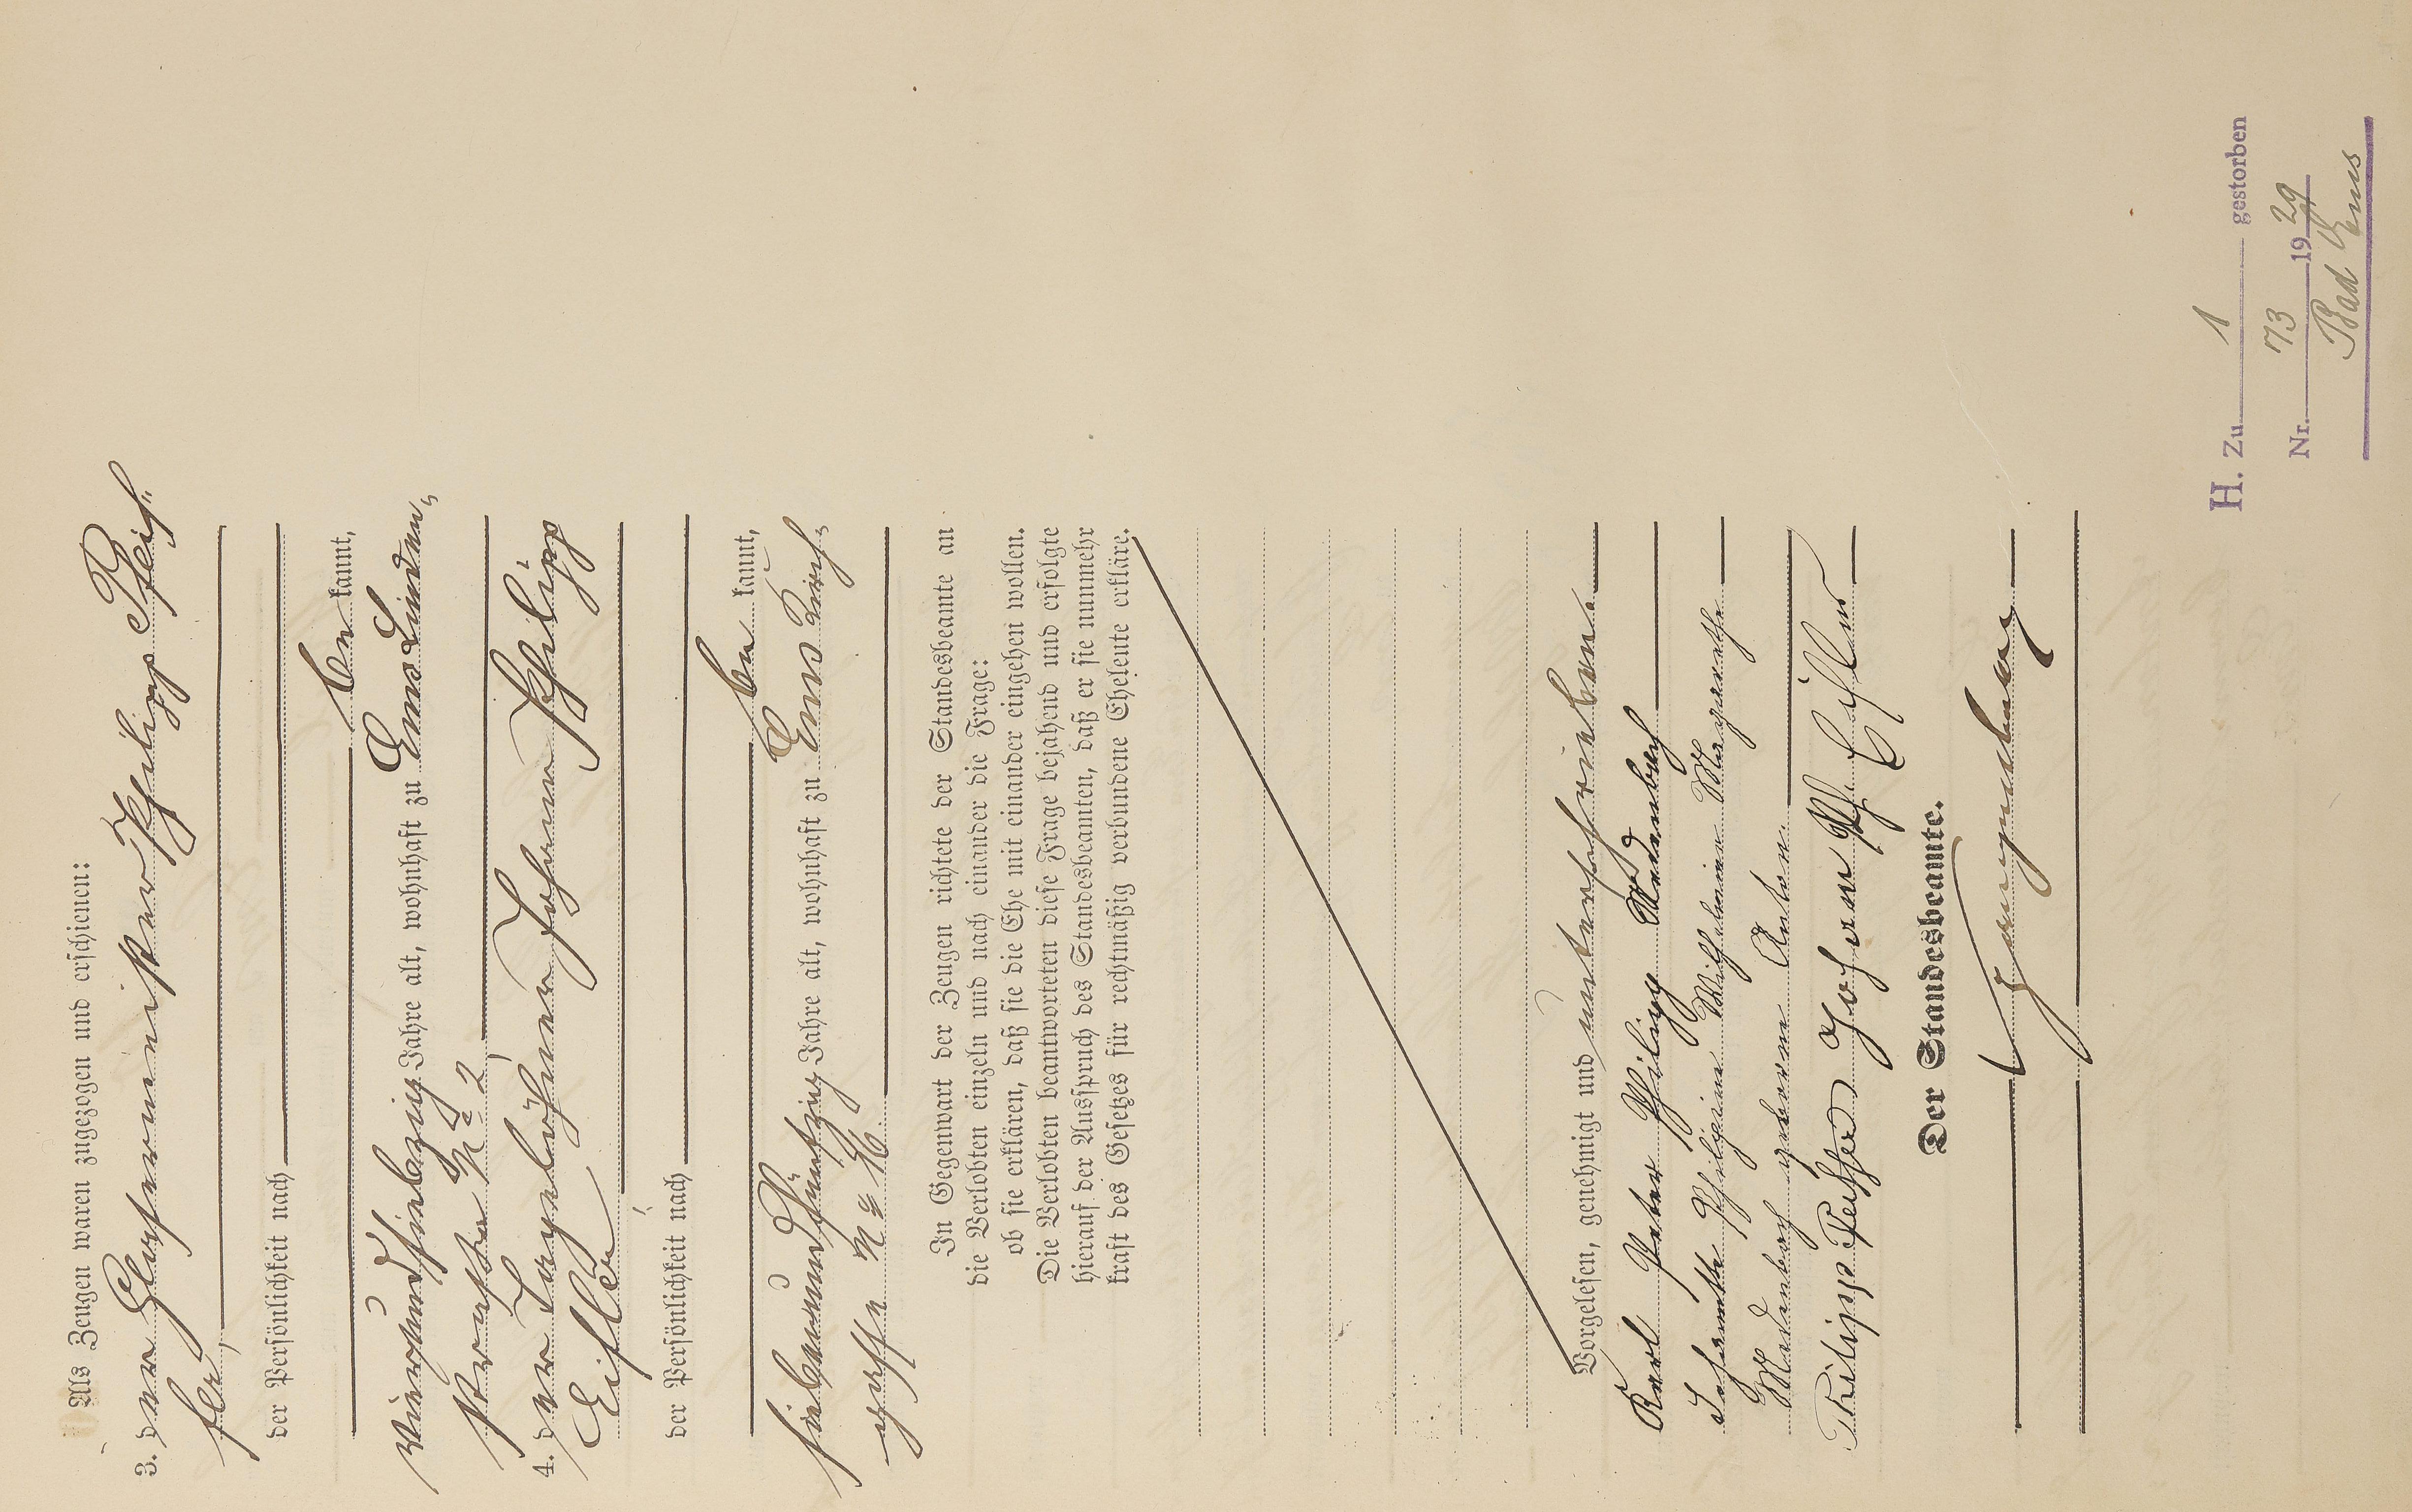 Als Zeugen waren zugezogen und erschienen:
3. der Glasermeister Philipp Pfeif-
fer,
der Persönlichkeit nach
be kannt,
vierundsiebzig Jahre alt, wohnhaft zu Ems Linden-
straße No 2
4. der Tagelöhner Johann Philipp
Eifler
der Persönlichkeit nach
be kannt,
siebenundfünfzig Jahre alt, wohnhaft zu Ems Kirch-
gasse No 16.
In Gegenwart der Zeugen richtete der Standesbeamte an
die Verlobten einzeln und nach einander die Frage:
ob sie erklären, daß sie die Ehe mit einander eingehen wollen.
Die Verlobten beantworteten diese Frage bejahend und erfolgte
hierauf der Ausspruch des Standesbeamten, daß er sie nunmehr
kraft des Gesetzes für rechtmäßig verbundene Eheleute erkläre.
Vorgelesen, genehmigt und unterschrieben.
Karl Peter Philipp Medenbach
Jeanette Philippine Wilhelmine Margarethe
Medenbach geborene Anton.
Philipp Peiffer Johann Ph. Eifler
Der Standesbeamte.
H. Zu 1 gestorben
Nr. 73 1929
Bad Ems